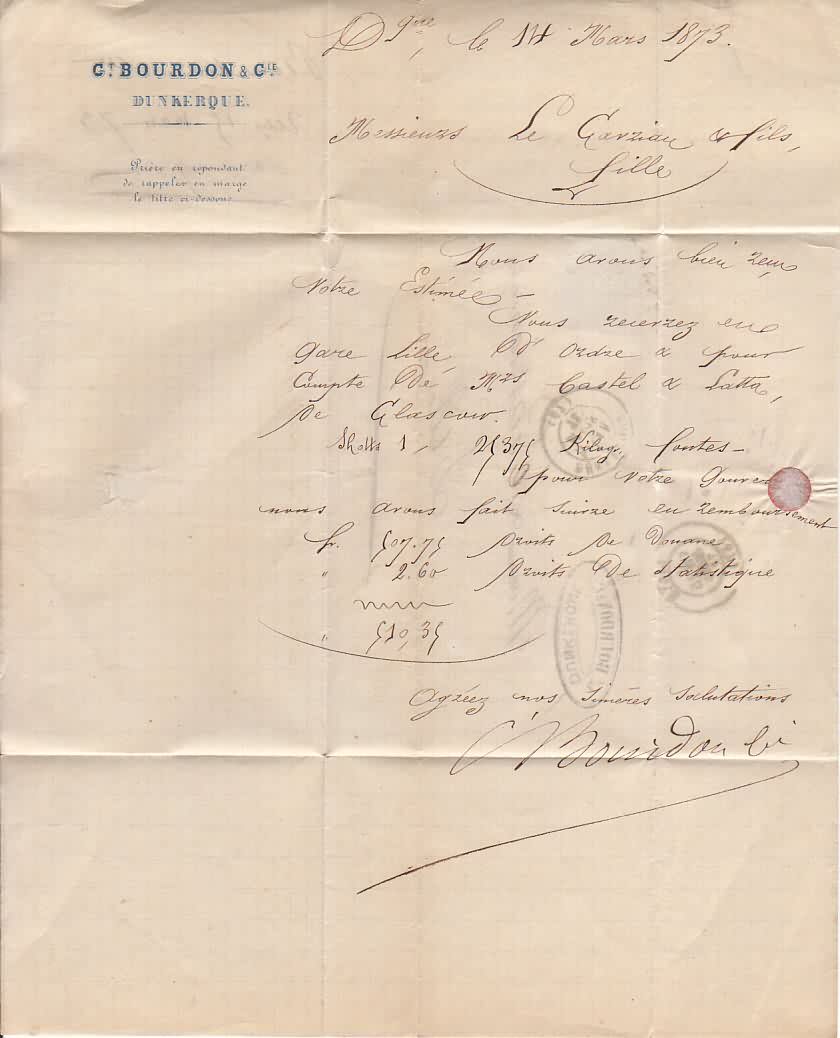 Gᵀ BOURDON & Cᴵᴱ
DUNKERQUE.
Prière en répondant
de rappeler en marge
le titre ci-dessous
Dqᵘᵉ, le 14 Mars 1873.
Messieurs Le Gavrian & fils,
Lille
Nous avons bien reçu
Votre Estimée –
Vous recevrez en
gare Lille, Dʳ Ordre & pour
Compte De Mʳˢ Castel & Latta,
De Glascow.
Shotts 1, 25375 Kilogˢ fontes –
pour Votre Gouverne
nous avons fait suivre en remboursement
fr. 507.75 Droits De Douane
" 2.60 Droits De Statistique
" 510,35
Agréez nos sincères salutations
Gᵗ Bourdon Cⁱᵉ
BOURDON
DUNKERQUE